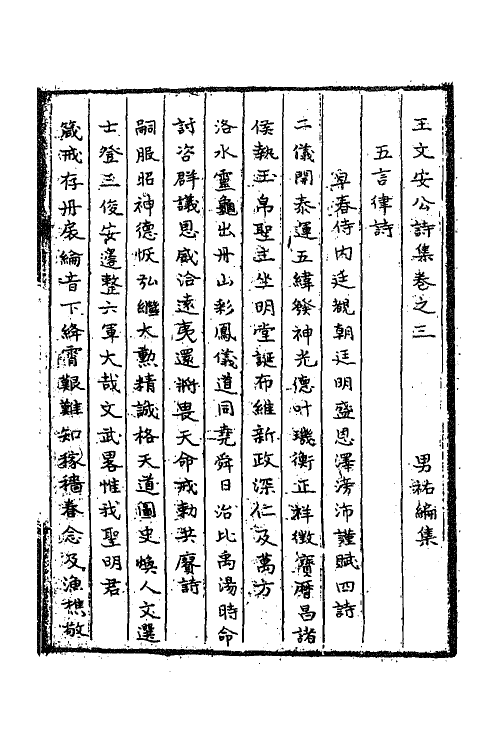 王文安公詩集卷之三　男祐編集
五言律詩
早春侍內廷覩朝廷明盛恩澤滂沛謹賦四詩
二儀開泰運五緯發神光德叶璣衡正祥徵寶曆昌諸
侯執玉帛聖主坐明堂誕布維新政深仁及萬方
洛水靈龜出丹山彩鳳儀道同堯舜日治比禹湯時命
討咨群議恩威洽遠夷還將畏天命戒勅矢賡詩
嗣服昭神德恢弘繼大勲精誠格天道圖史煥人文選
士登三俊安邊整六軍大哉文武畧惟我聖明君
箴戒存丹扆綸音下絳霄艱難知稼穡眷念及漁樵敬